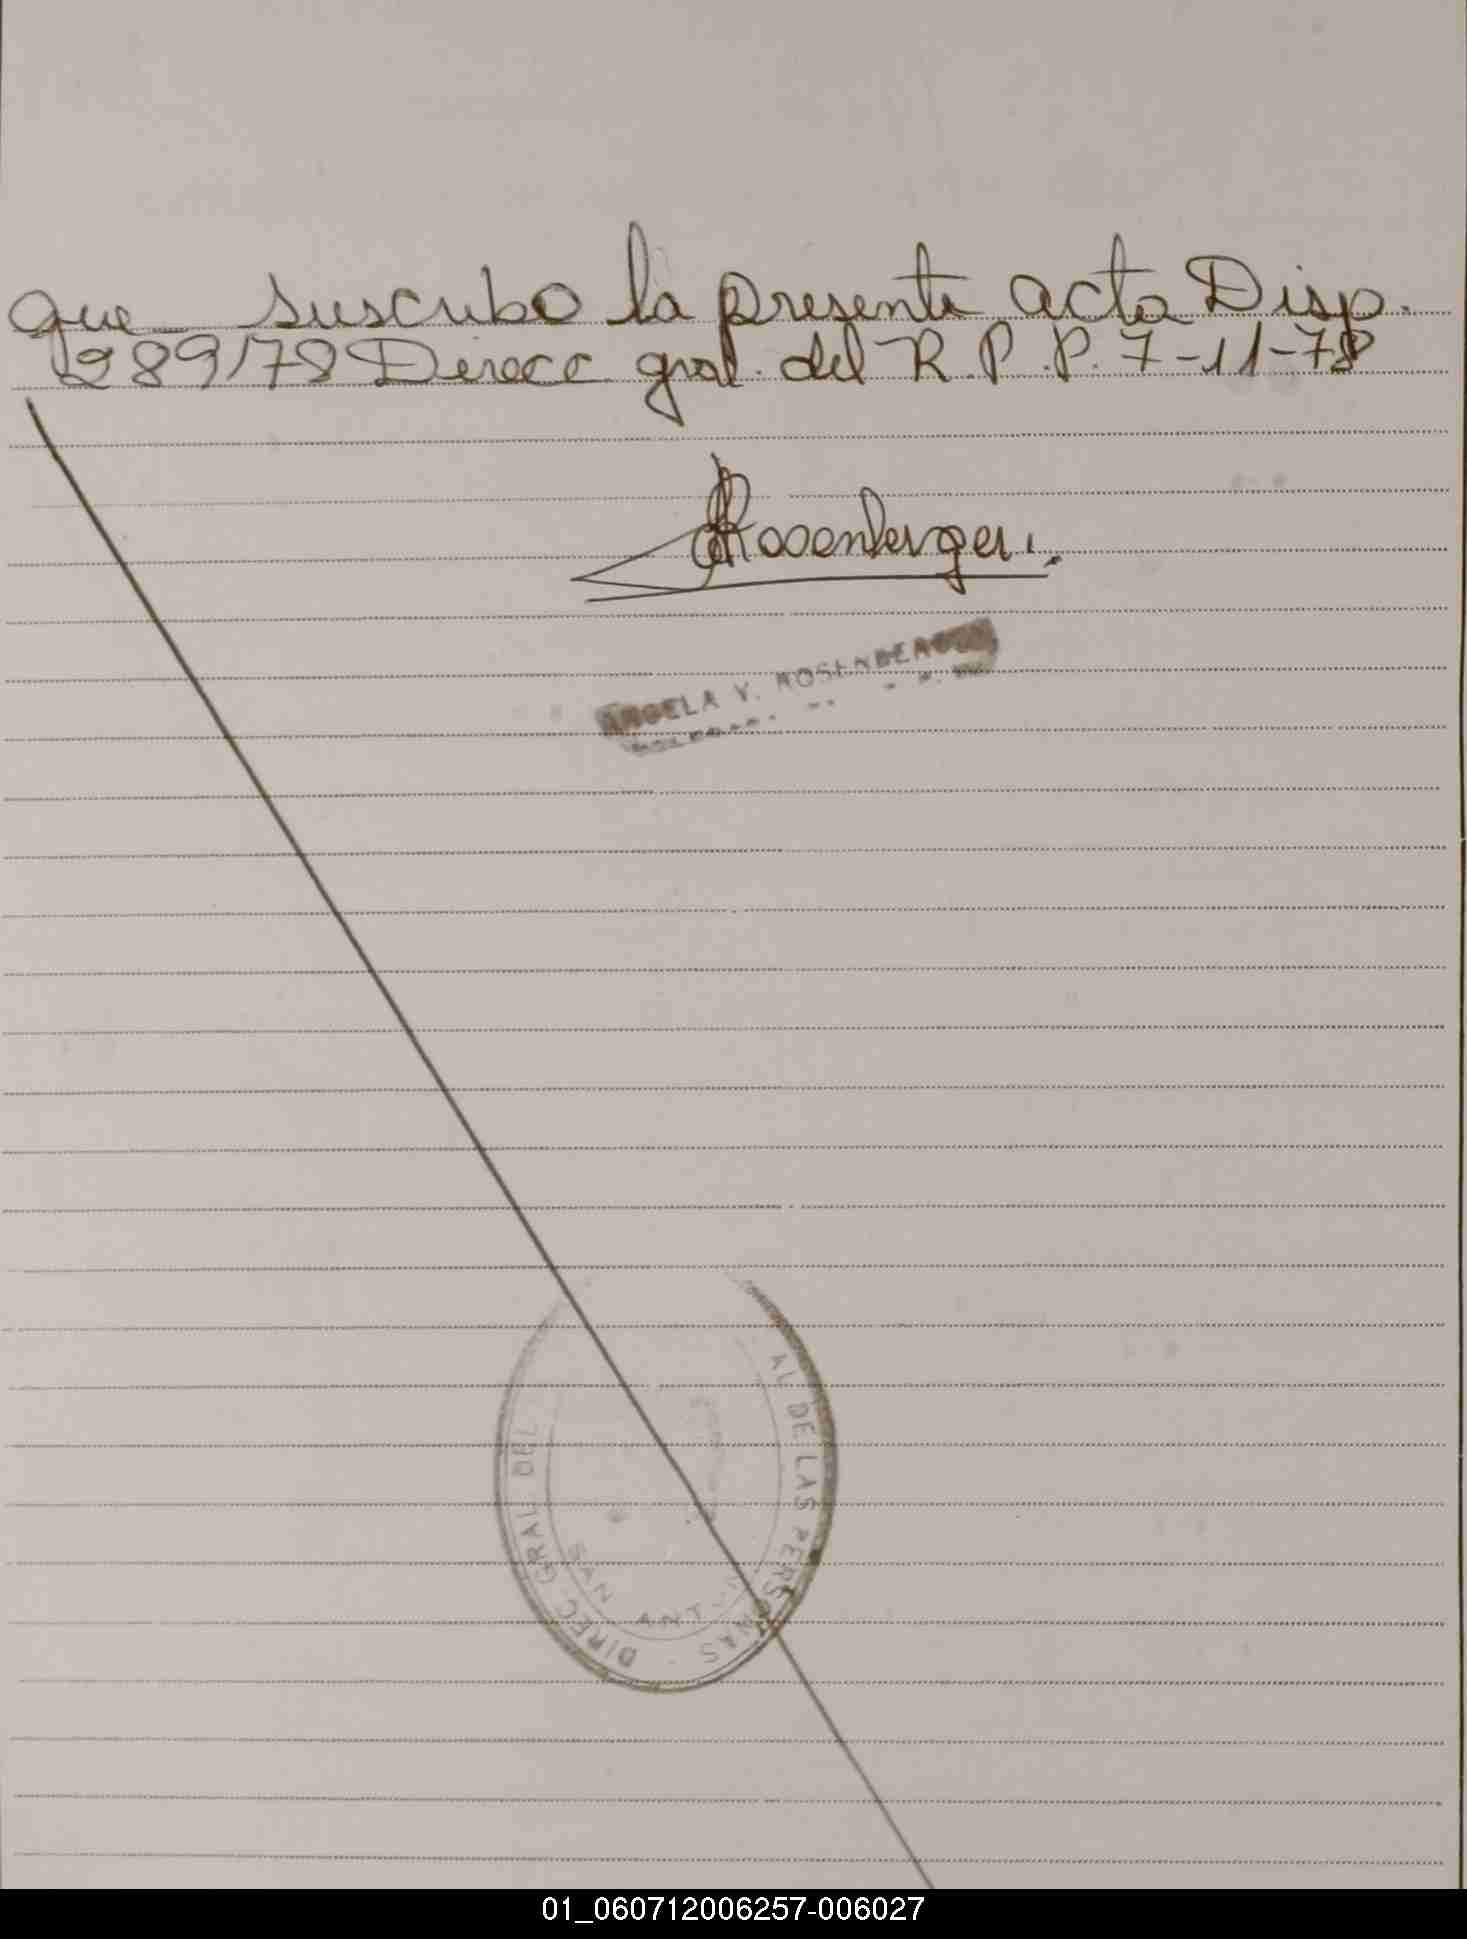 que suscribo la presente acta Disp.
289/78 Direcc gral. del R.P.P. 7-11-78
Rosenberger.
ANGELA V. ROSENBERGER
DIREC GRAL DEL AL DE LAS PERSONAS -
SAN ANTON
01_060712006257-006027